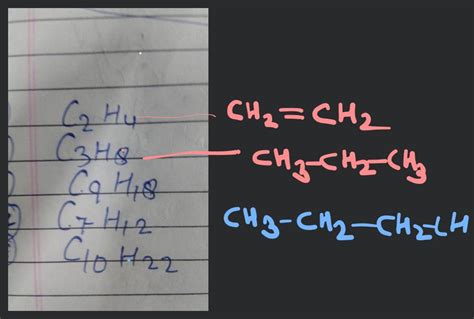 C2H4
CH2=CH2
C3H8
CH3-CH2-CH3
C9H18
C7H12
CH3-CH2-CH2-CH
C10H22